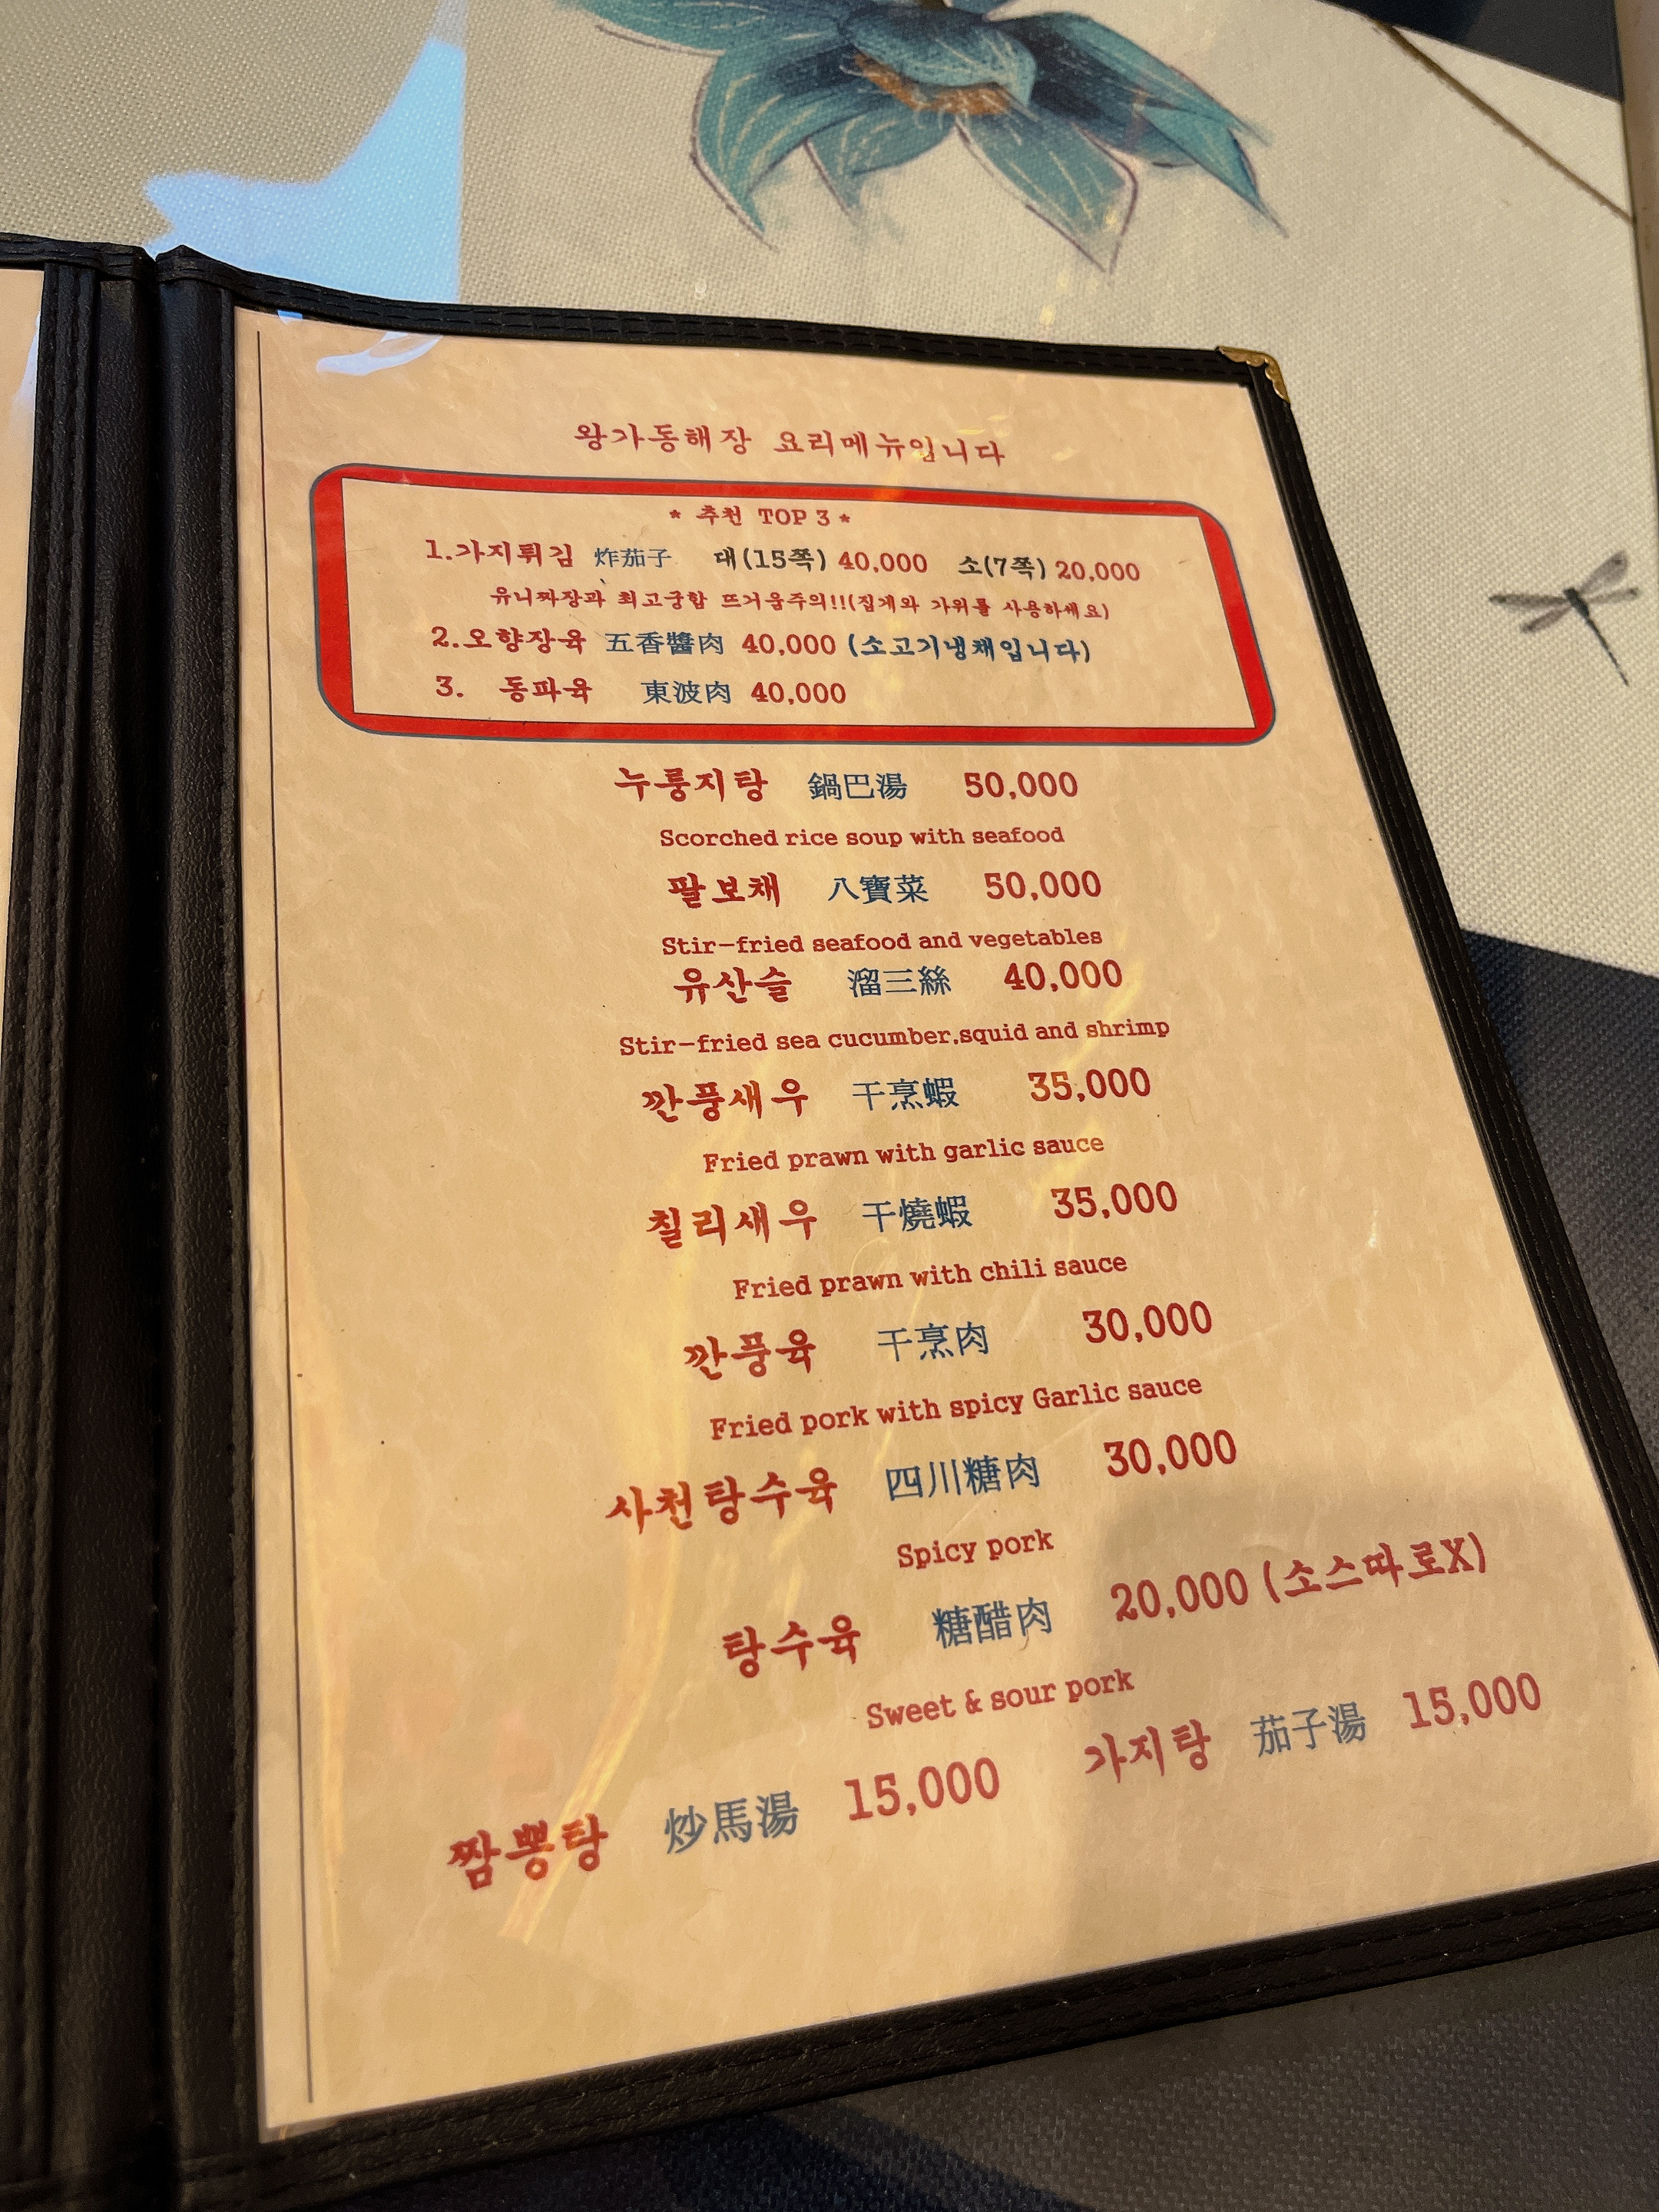 왕가동해장 요리메뉴입니다
* 추천 TOP 3 *
1.가지튀김 炸茄子 대(15쪽) 40,000 소(7쪽) 20,000
유니짜장과 최고궁합 뜨거움주의!!(집게와 가위를 사용하세요)
2.오향장육 五香醬肉 40,000 (소고기냉채입니다)
3. 동파육 東波肉 40,000
누룽지탕 鍋巴湯 50,000
Scorched rice soup with seafood
팔보채 八寶菜 50,000
Stir-fried seafood and vegetables
유산슬 溜三絲 40,000
Stir-fried sea cucumber,squid and shrimp
깐풍새우 干烹蝦 35,000
Fried prawn with garlic sauce
칠리새우 干燒蝦 35,000
Fried prawn with chili sauce
깐풍육 干烹肉 30,000
Fried pork with spicy Garlic sauce
사천탕수육 四川糖肉 30,000
Spicy pork
탕수육 糖醋肉 20,000 (소스따로X)
Sweet & sour pork
짬뽕탕 炒馬湯 15,000 가지탕 茄子湯 15,000